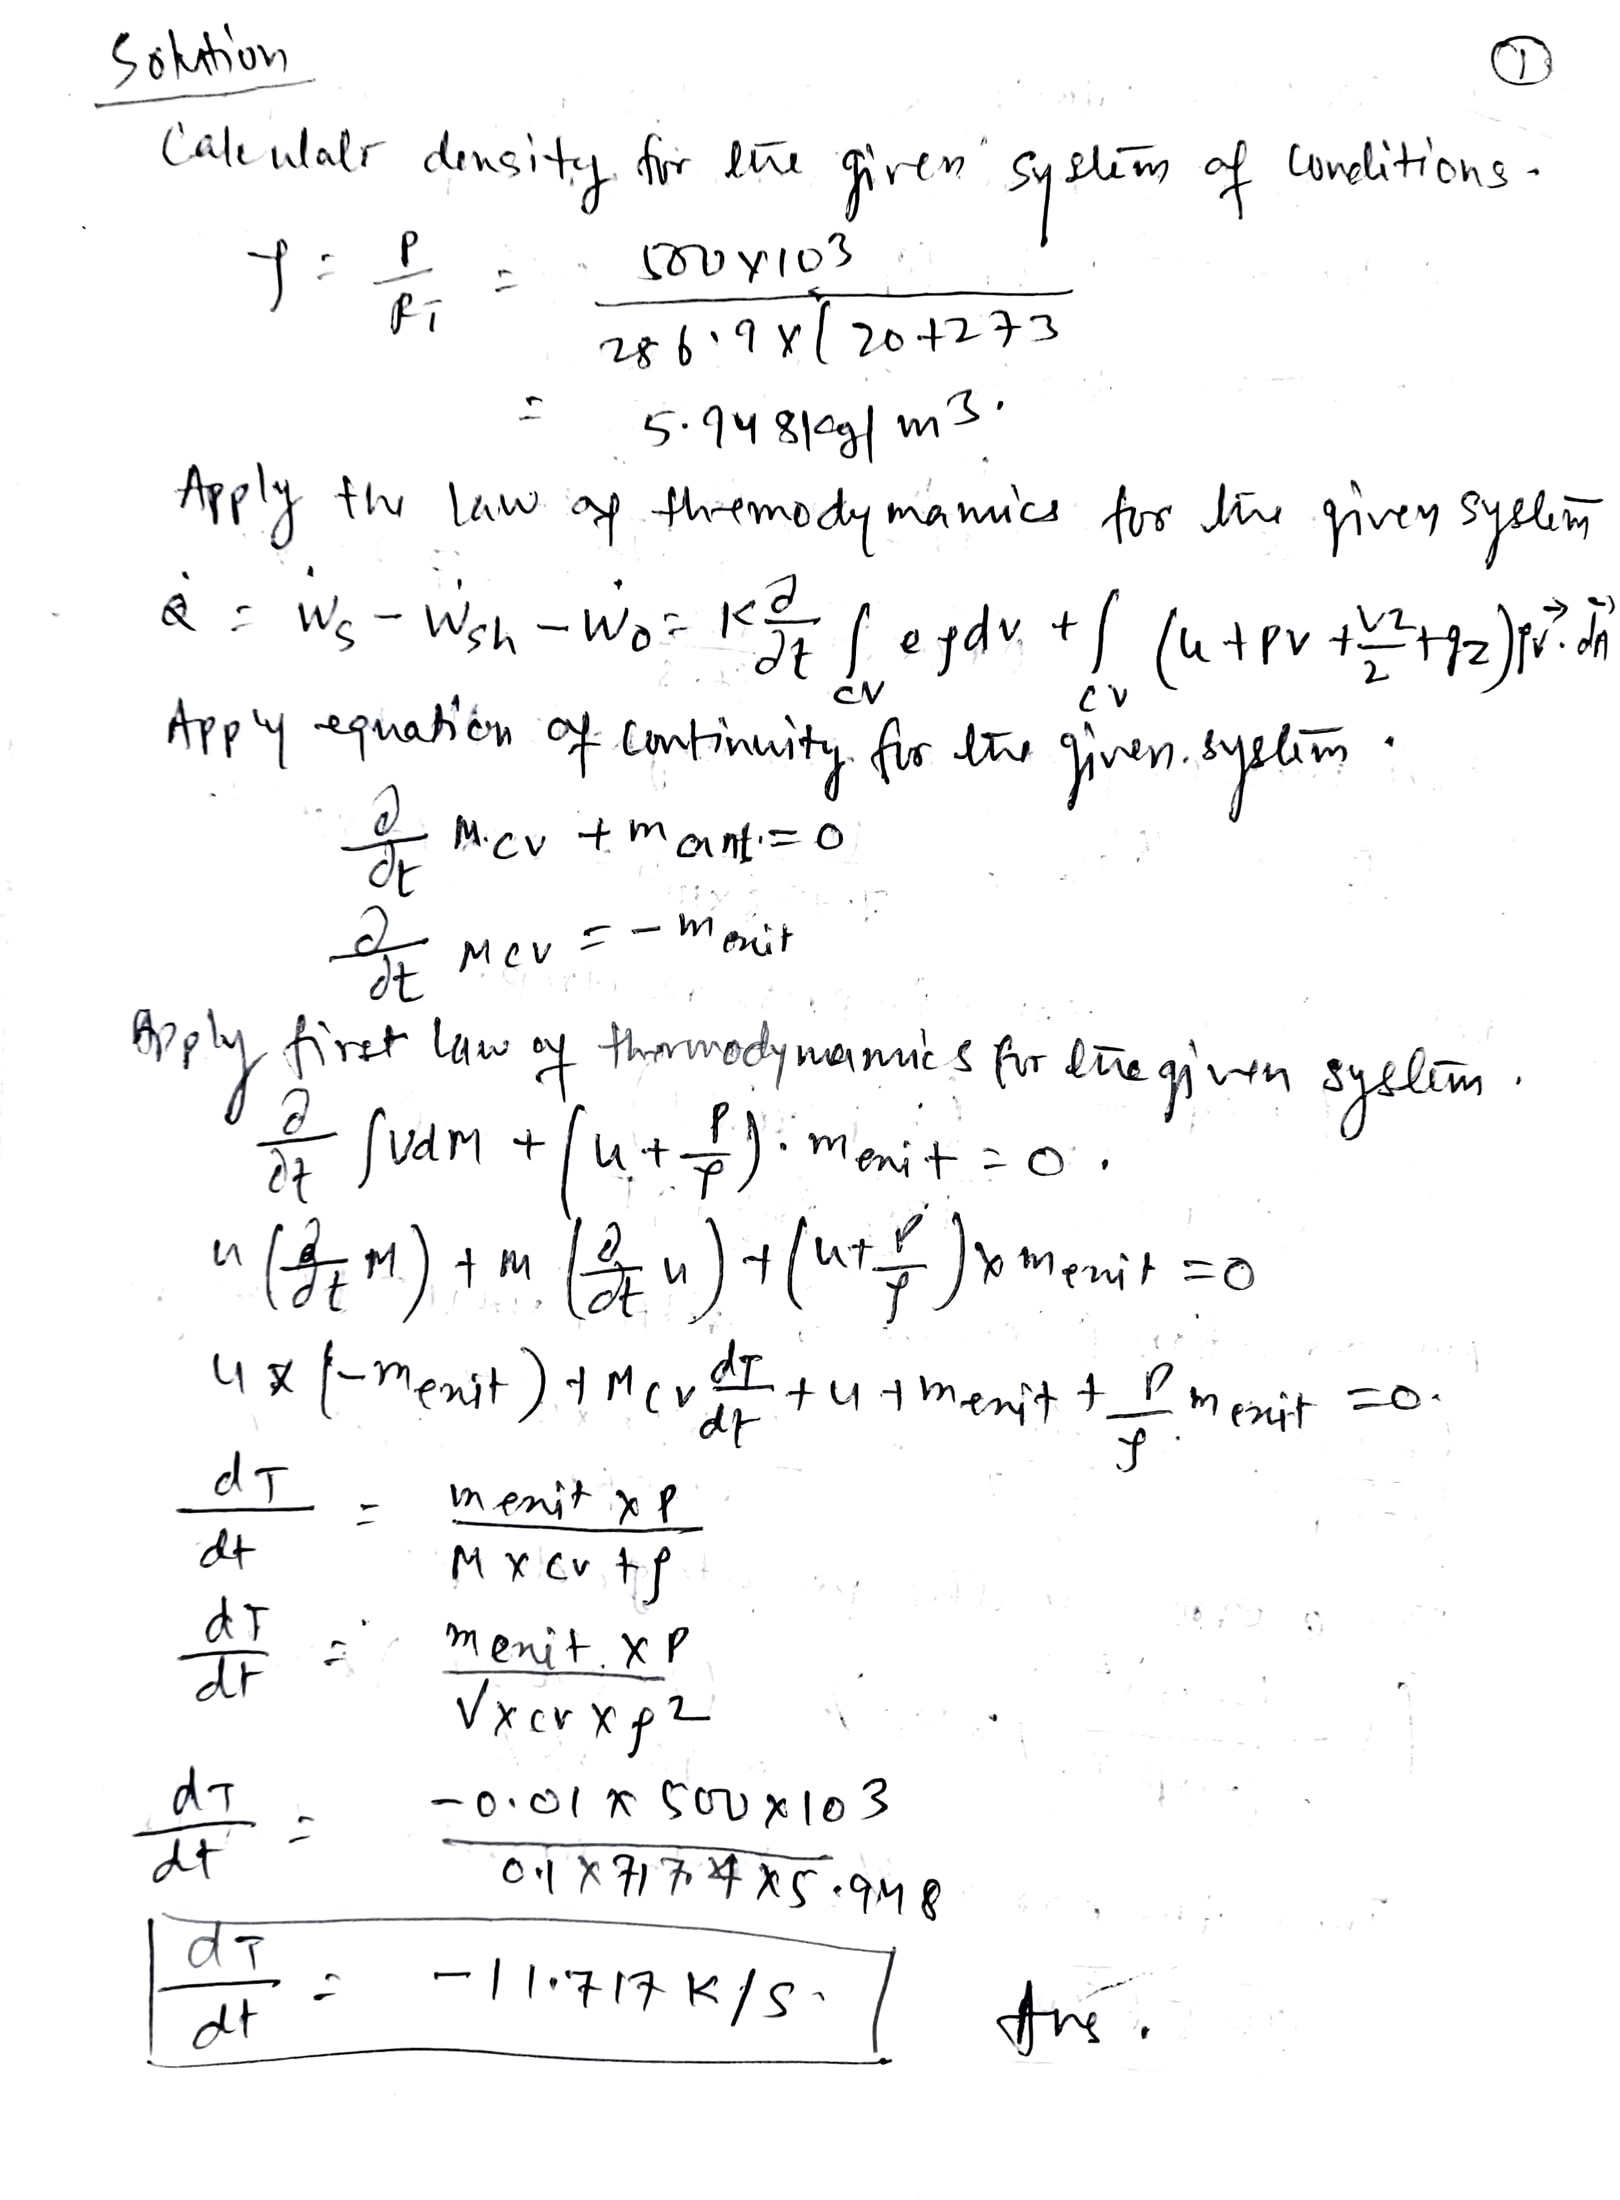 Solution
①
Calculate density for the given system of conditions.
ρ = P/RT = 500×10³ / 286.9×(20+273
= 5.948 kg/m³.
Apply the law of thremodymamics for the given system
Q̇ = Ẇs - Ẇsh - Ẇo = K ∂/∂t ∫cv eρdv + ∫cv (u + pv + v²/2 + gz) ρv⃗·dA⃗
Apply equation of continuity for the given system.
∂/∂t M.cv + m = 0
∂/∂t Mcv = -m exit
Apply first law of thermodynamics for the given system.
∂/∂t ∫udM + (u + P/ρ)·m exit = 0.
u(∂/∂t M) + m(∂/∂t u) + (u + P/ρ) × m exit = 0
u × (-m exit) + M cv dT/dt + u + m exit + P/ρ m exit = 0.
dT/dt = m exit × P / M × cv + ρ
dT/dt = m exit. × P / V × cv × ρ²
dT/dt = -0.01 × 500 × 10³ / 0.1 × 717.4 × 5.948
dT/dt = -11.717 K/S. Ans.